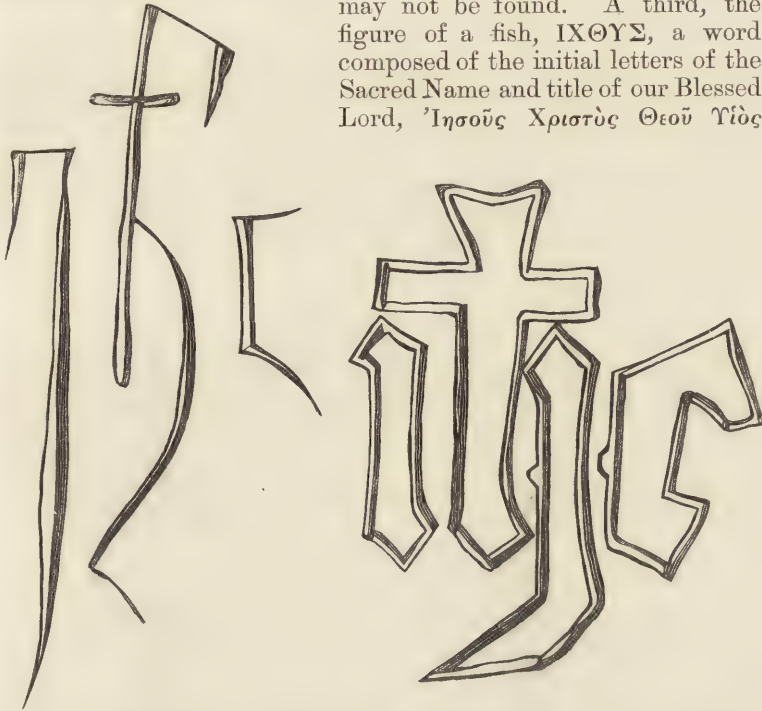 may not be found. A third, the
figure of a fish, ΙΧΘΥΣ, a word
composed of the initial letters of the
Sacred Name and title of our Blessed
Lord, Ἰησοῦς Χριστὸς Θεοῦ Υἱὸς
ihc
ihc